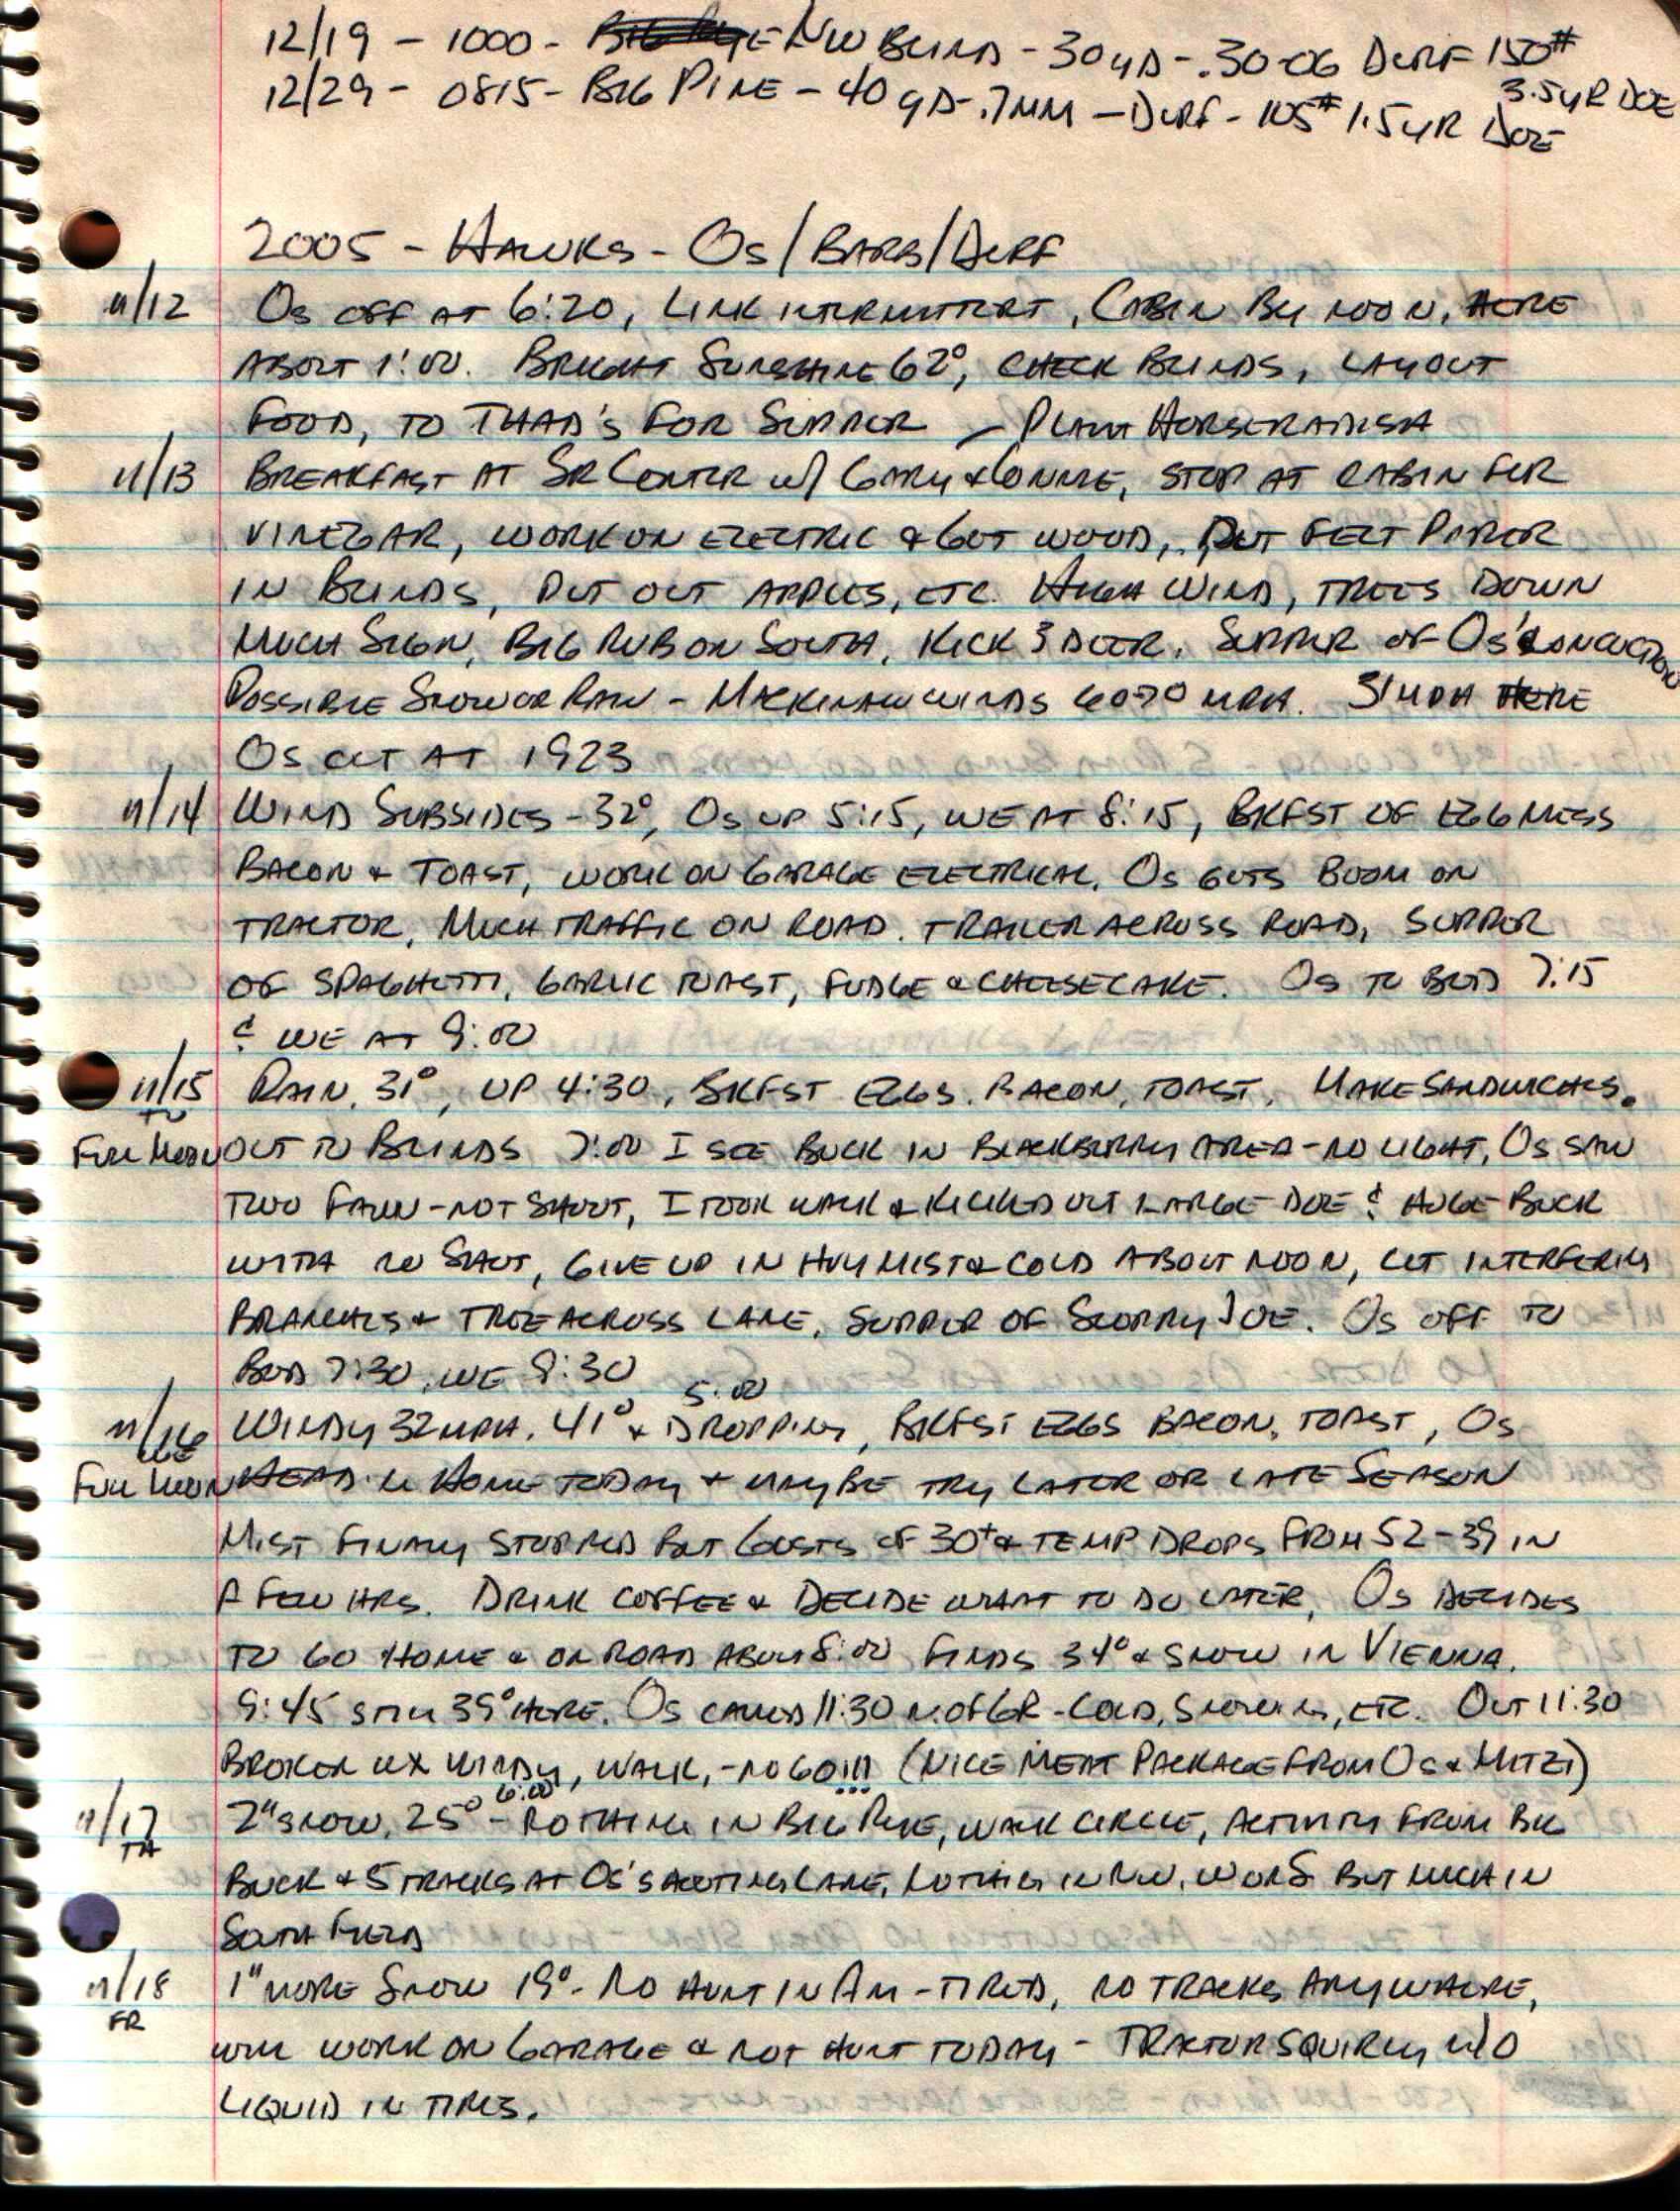 12/19 - 1000 - NW BLIND - 30 YD - .30-06 DERF 150#
3.5 YR DOE
12/29 - 0815 - BIG PINE - 40 YD - .7MM - DERF - 105# 1.5 YR DOE
2005 - HAWKS - OS/BARB/DERF
11/12 OS OFF AT 6:20, LINK INTERMITTENT, CABIN BY NOON, HERE
ABOUT 1:00. BRIGHT SUNSHINE 62°, CHECK BLINDS, LAYOUT
FOOD, TO THAD'S FOR SUPPER - PLANT HORSERADISH
11/13 BREAKFAST AT SR CENTER W/ GARY & CONNIE, STOP AT CABIN FOR
VINEGAR, WORK ON ELECTRIC & GET WOOD, PUT FELT PAPER
IN BLINDS, PUT OUT APPLES, ETC. HIGH WIND, TREES DOWN
MUCH SIGN, BIG RUB ON SOUTH, KICK 3 DEER, SUPPER OF OS' CONCOCTION
POSSIBLE SNOW OR RAIN - MACKINAW WINDS 60-70 MPH. 31 MPH HERE
OS OUT AT 1923
11/14 WIND SUBSIDES - 32°, OS UP 5:15, WE AT 8:15, BKFST OF EGG MESS
BACON & TOAST, WORK ON GARAGE ELECTRICAL, OS GETS BOOM ON
TRACTOR, MUCH TRAFFIC ON ROAD. TRAILER ACROSS ROAD, SUPPER
OF SPAGHETTI, GARLIC TOAST, FUDGE & CHEESECAKE. OS TO BED 7:15
& WE AT 9:00
11/15 RAIN, 31°, UP 4:30, BKFST EGGS, BACON, TOAST, MAKE SANDWICHES.
TU
FULL MOON OUT TO BLINDS 7:00 I SEE BUCK IN BLACKBERRY AREA - NO LIGHT, OS SAW
TWO FAWN - NOT SHOOT, I TOOK WALK & KICKED OUT LARGE DOE & HUGE BUCK
WITH NO SHOT, GIVE UP IN HVY MIST & COLD ABOUT NOON, CUT INTERFERING
BRANCHES & TREE ACROSS LANE, SUPPER OF SLOPPY JOE. OS OFF TO
BED 7:30, WE 9:30
5:00
11/16 WINDY 32 MPH, 41° & DROPPING, BKFST EGGS BACON, TOAST, OS
WE
FULL MOON HEADIN HOME TODAY & MAYBE TRY LATER OR LATE SEASON
MIST FINALLY STOPPED BUT GUSTS OF 30+ & TEMP DROPS FROM 52-39 IN
A FEW HRS. DRINK COFFEE & DECIDE WHAT TO DO LATER, OS DECIDES
TO GO HOME & ON ROAD ABOUT 8:00 FINDS 34° & SNOW IN VIENNA.
9:45 STILL 39° HERE. OS CALLED 11:30 N. OF GR - COLD, SNOWING, ETC. OUT 11:30
BROKEN WX WINDY, WALK, - NO GO!!! (NICE MEAT PACKAGE FROM OS & MITZI)
6:00
11/17 2" SNOW, 25° - NOTHING IN BIG PINE, WALK CIRCLE, ACTIVITY FROM BIG
TH
BUCK & 5 TRACKS AT OS'S SHOOTING LANE, NOTHING IN NW, W OR S BUT MUCH IN
SOUTH FIELD
11/18 1" MORE SNOW 19° - NO HUNT IN AM - TIRED, NO TRACKS ANYWHERE,
FR
WILL WORK ON GARAGE & NOT HUNT TODAY - TRACTOR SQUIRLY W/O
LIQUID IN TIRES.